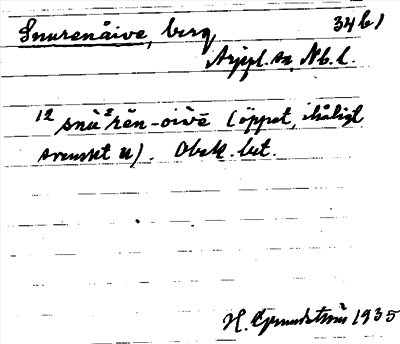 Snurenåive, berg 34 b1
Arjepl. sn, Nb. l.
12 snu̇²rēn-oivē (öppet, ihåligt
svenskt u). Obek. bet.
H. Grundström 1935